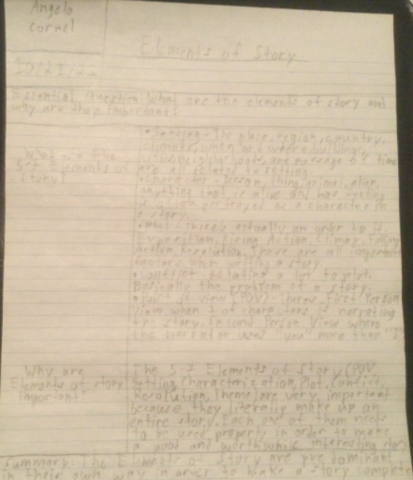 Angelo
Cornel
Elements of Story
Essential Question: What are the elements of story and
why are they important?
What are the
5-7 Elements of
story?
• Setting - The place, region, country,
climate, when and where, buildings,
and passage of time
are all related to setting.
• Character - Person, thing, animal, alien,
anything that is alive and has
portrayed as a character in
a story.
• Plot - There's actually an order to it.
Exposition, Rising Action, Climax, Falling
Action, Resolution. These are all important
factors when writing a story.
• Conflict - Relating a lot to plot.
Basically the problem of a story.
• Point of view (POV) - First Person
View when 1 of characters is narrating
the story. Second Person View where
the narrator uses "you" more than "I"
Why are
Elements of story
important?
The 5-7 Elements of Story (POV,
Setting, Characterization, Plot, Conflict,
Resolution, Theme) are very important
because they literally make up an
entire story. Each one of them needs
to be used properly in order to make
a good and worthwhile interesting story
Summary: The Elements of Story are dominant
in their own way in order to make a story complete